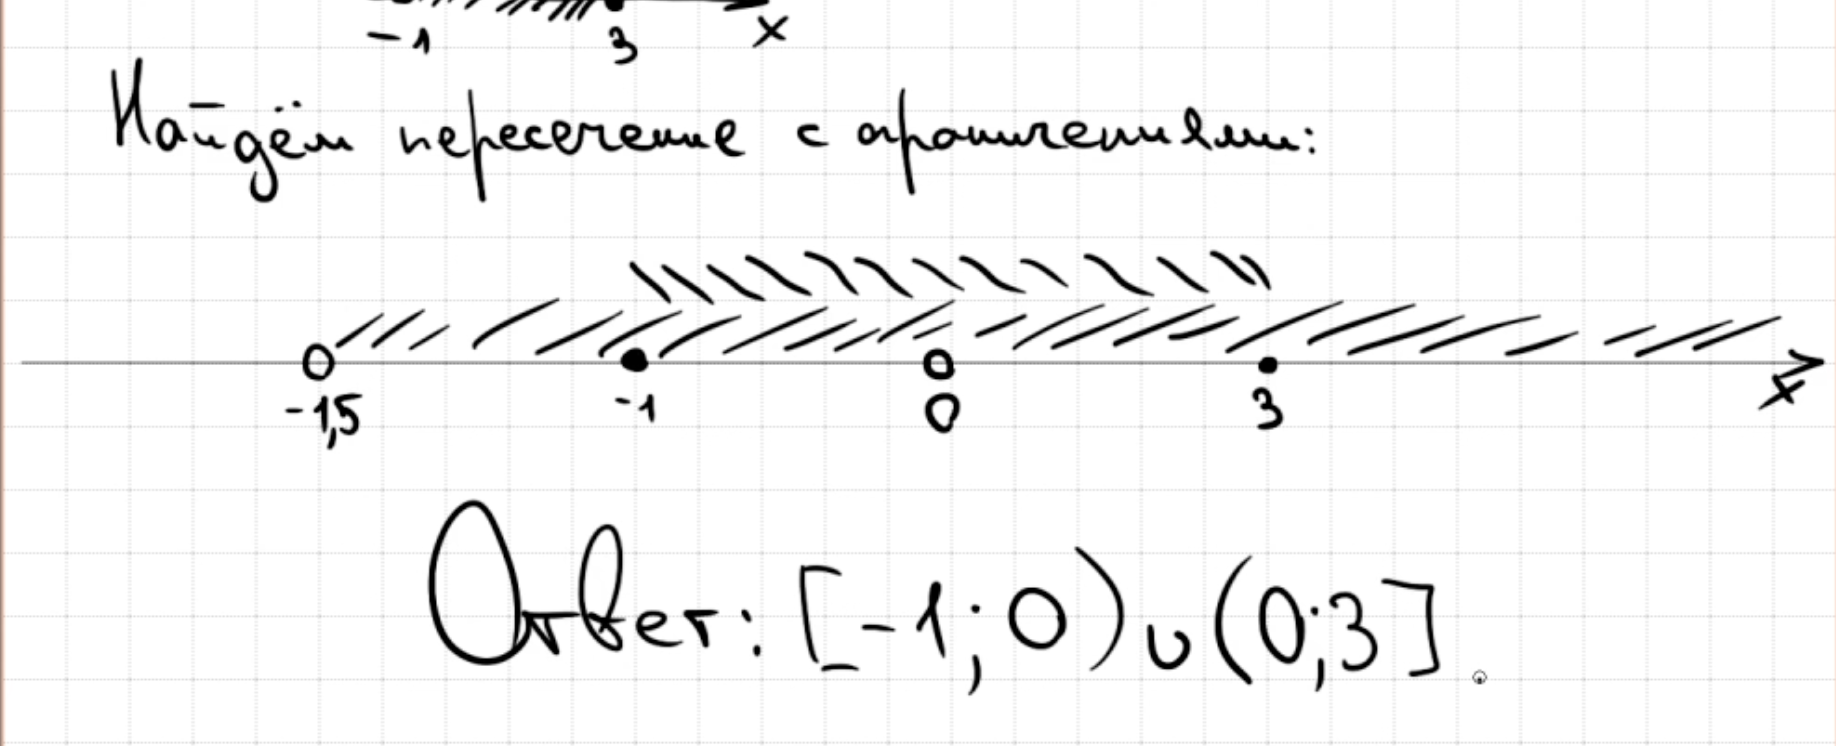 -1 3 x
Найдём пересечение с ограничениями:
-1,5 -1 0 3 x
Ответ: [-1; 0) ∪ (0; 3].